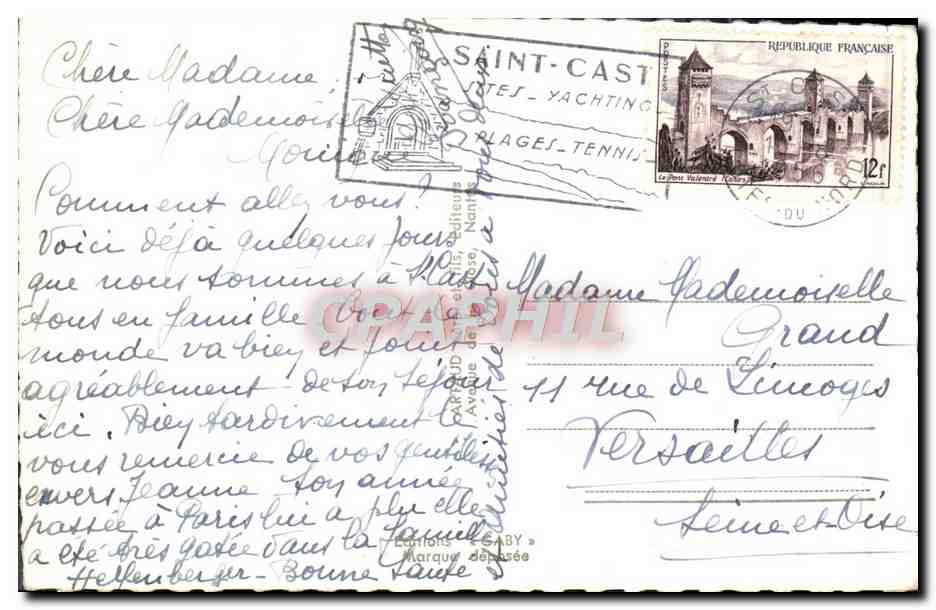 Chère Madame,
Chère Mademoiselle
Comment allez vous?
Voici déjà quelques jours
que nous sommes à St. Cast
tous en famille Tout le
monde va bien et jouit
agréablement de son séjour
ici. Bien tardivement je
vous remercie de vos gentillesses
envers Jeanne son année
passée à Paris lui a plu elle
a été très gatée dans la famille
Helfenberger - Bonne Santé
et amitiés de nous à vous deux
SAINT-CAST
SITES - YACHTING
PLAGES - TENNIS
REPUBLIQUE FRANÇAISE
POSTES
Le Pont Valentré Cahors
12f
ST CAST
DU NORD
ARTAUD Père et Fils, Editeurs
Avenue de la Close, Nantes
Editions « GABY »
Marque déposée
CPAPHIL
Madame Mademoiselle
Grand
11 rue de Limoges
Versailles
Seine-et-Oise